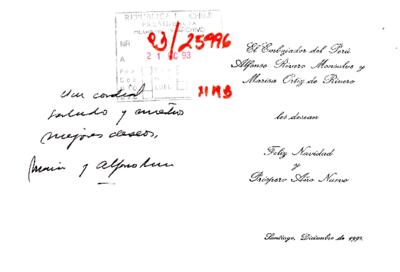 REPUBLICA DE CHILE
PRESIDENCIA
NR 93/25996
A 21 DIC 93
Un cordial
saludo y nuestros
mejores deseos,
María y Alfonso
El Embajador del Perú
Alfonso Rivero Monsalve y
Marisa Ortiz de Rivero
les desean
Feliz Navidad
y
Próspero Año Nuevo
Santiago, Diciembre de 1993.